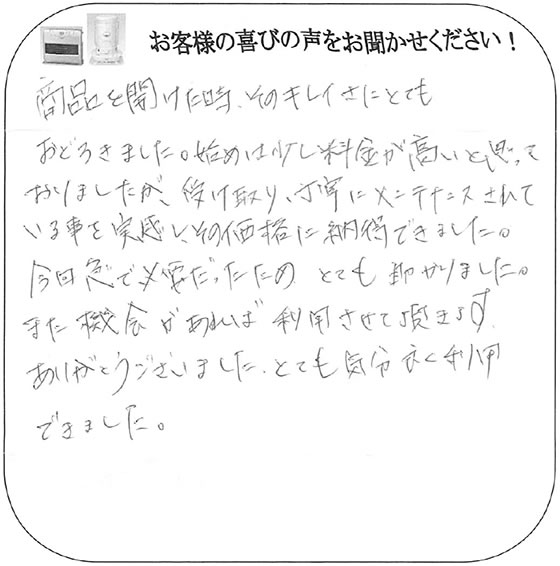 お客様の喜びの声をお聞かせください！
商品を開けた時、そのキレイさにとても
おどろきました。始めは少し料金が高いと思って
おりましたが、受け取り、丁寧にメンテナンスされて
いる事を実感し、その価格に納得できました。
今回急で必要だったため とても助かりました。
また機会があれば利用させて頂きます。
ありがとうございました。とても気分良く利用
できました。